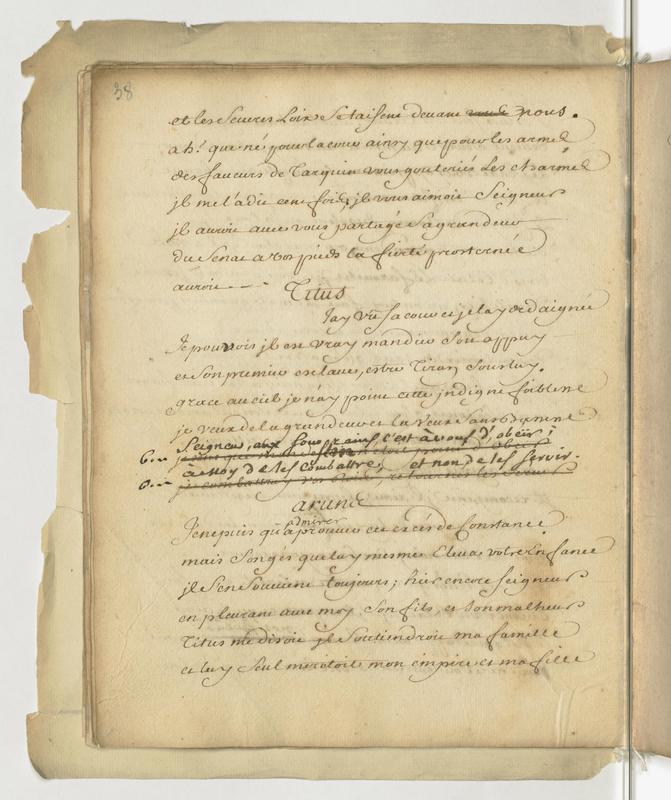 38
et les Severes Loix Se taisent devant vous nous.
ah! que né pour la cour ainsy que pour les armes
des faveurs de Tarquin vous goûteriés les charmes
jl me l'a dit cent fois, jl vous aimoit Seigneur
jl auroit avec vous partagé Sa grandeur
du Senat a vos pieds la fierté prosternée
auroit - - -
Titus
J'ay vû sa cour et je l'ay dedaignée
Je pourrois jl est vray mandier Son appuy
et Son premier esclave, estre Tiran Sous luy.
grace au ciel je n'ay point cette jndigne foiblesse
je veux de la grandeur et la veux Sans bassesse
B... Seigneur, aux souverains, c'est à vous d'obéir;
à moy de les combattre, et non de les servir.
arunce
Je ne puis qu'approuver admirer cet excés de Constance
mais Songés que luy mesme Eleva votre Enfance
jl S'en Souvient toujours; hier encore Seigneur
en pleurant avec moy Son fils, et Son malheur
Titus me disoit jl Soutiendroit ma famille
et luy Seul meritoit mon empire et ma fille